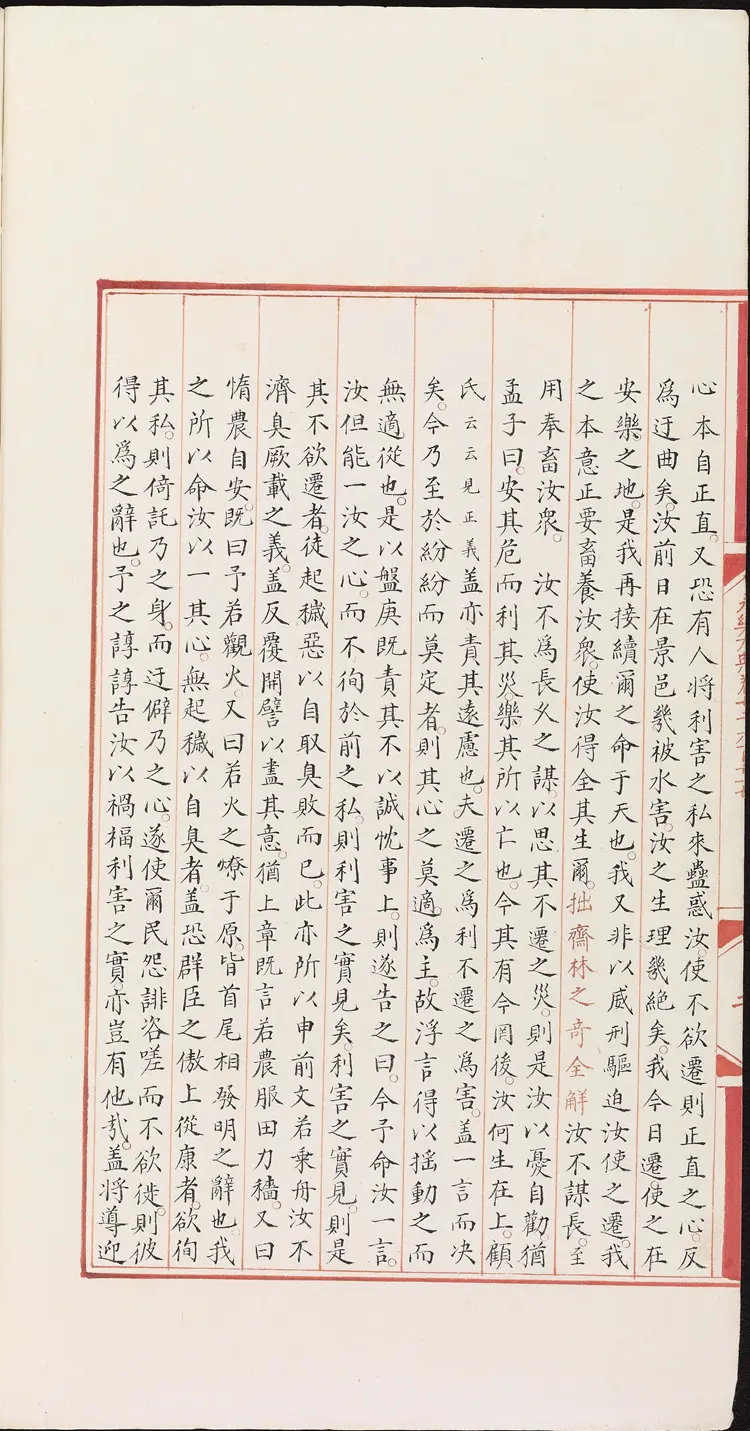 心本自正直。又恐有人將利害之私來蠱惑汝。使不欲遷則正直之心。反
爲迂曲矣。汝前日在景邑。幾被水害。汝之生理幾絕矣。我今日遷。使之在
安樂之地。是我再接續爾之命于天也。我又非以威刑驅迫汝使之遷。我
之本意正要畜養汝衆。使汝得全其生爾。拙齋林之奇全解汝不謀長。至
用奉畜汝衆。 汝不爲長久之謀。以思其不遷之災。則是汝以憂自勸。猶
孟子曰。安其危而利其災。樂其所以亡也。今其有今罔後。汝何生在上。顧
氏云云見正義蓋亦責其遠慮也。夫遷之爲利不遷之爲害。蓋一言而决
矣。今乃至於紛紛而莫定者。則其心之莫適爲主。故浮言得以摇動之而
無適從也。是以盤庚既責其不以誠忱事上。則遂告之曰。今予命汝一言。
汝但能一汝之心。而不徇於前之私。則利害之實見矣。利害之實見。則是
其不欲遷者。徒起穢惡以自取臭敗而已。此亦所以申前文若乗舟汝不
濟臭厥載之義。蓋反覆開譬以盡其意。猶上章既言若農服田力穡。又曰
惰農自安。既曰予若觀火。又曰若火之燎于原。皆首尾相發明之辭也。我
之所以命汝以一其心。無起穢以自臭者。蓋恐群臣之傲上從康者。欲徇
其私。則倚託乃之身。而迂僻乃之心。遂使爾民怨誹咨嗟而不欲徙。則彼
得以爲之辭也。予之諄諄告汝以禍福利害之實。亦豈有他哉。蓋將導迎